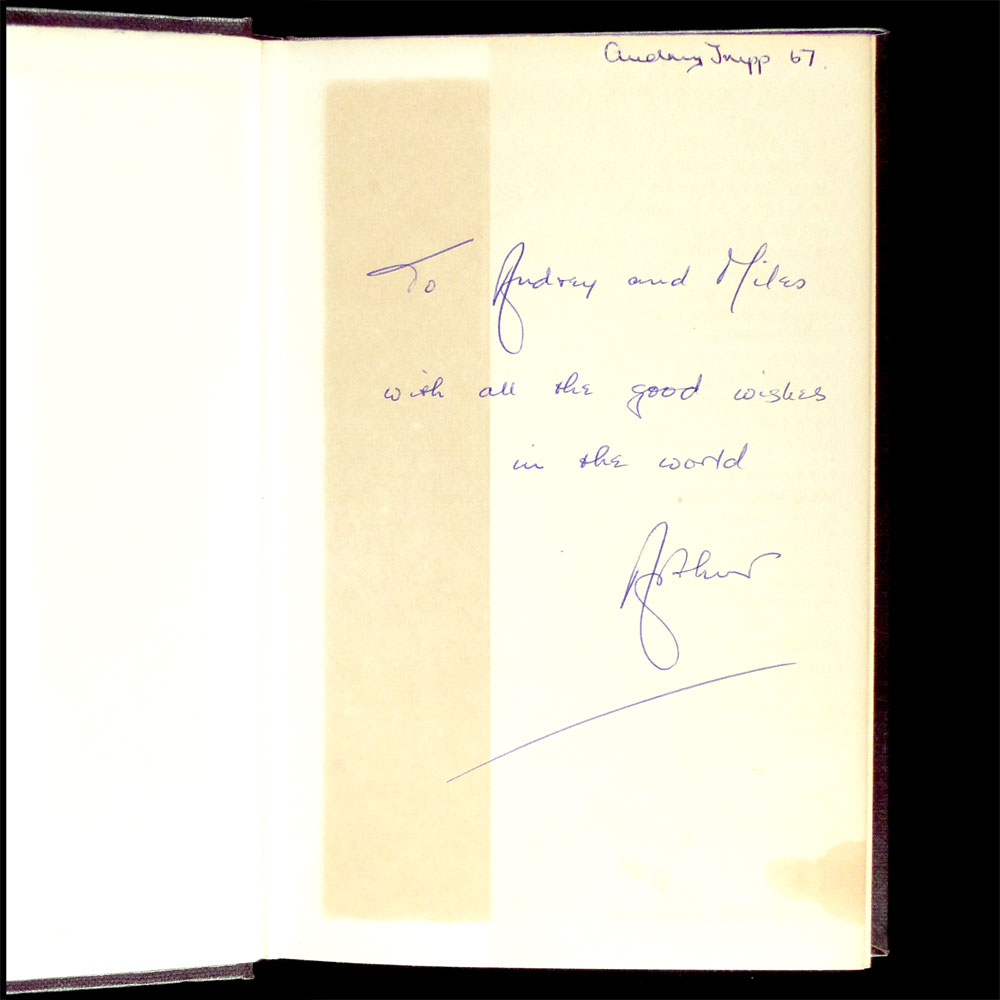 Audrey Tripp 67.
To Audrey and Miles
with all the good wishes
in the world
Arthur